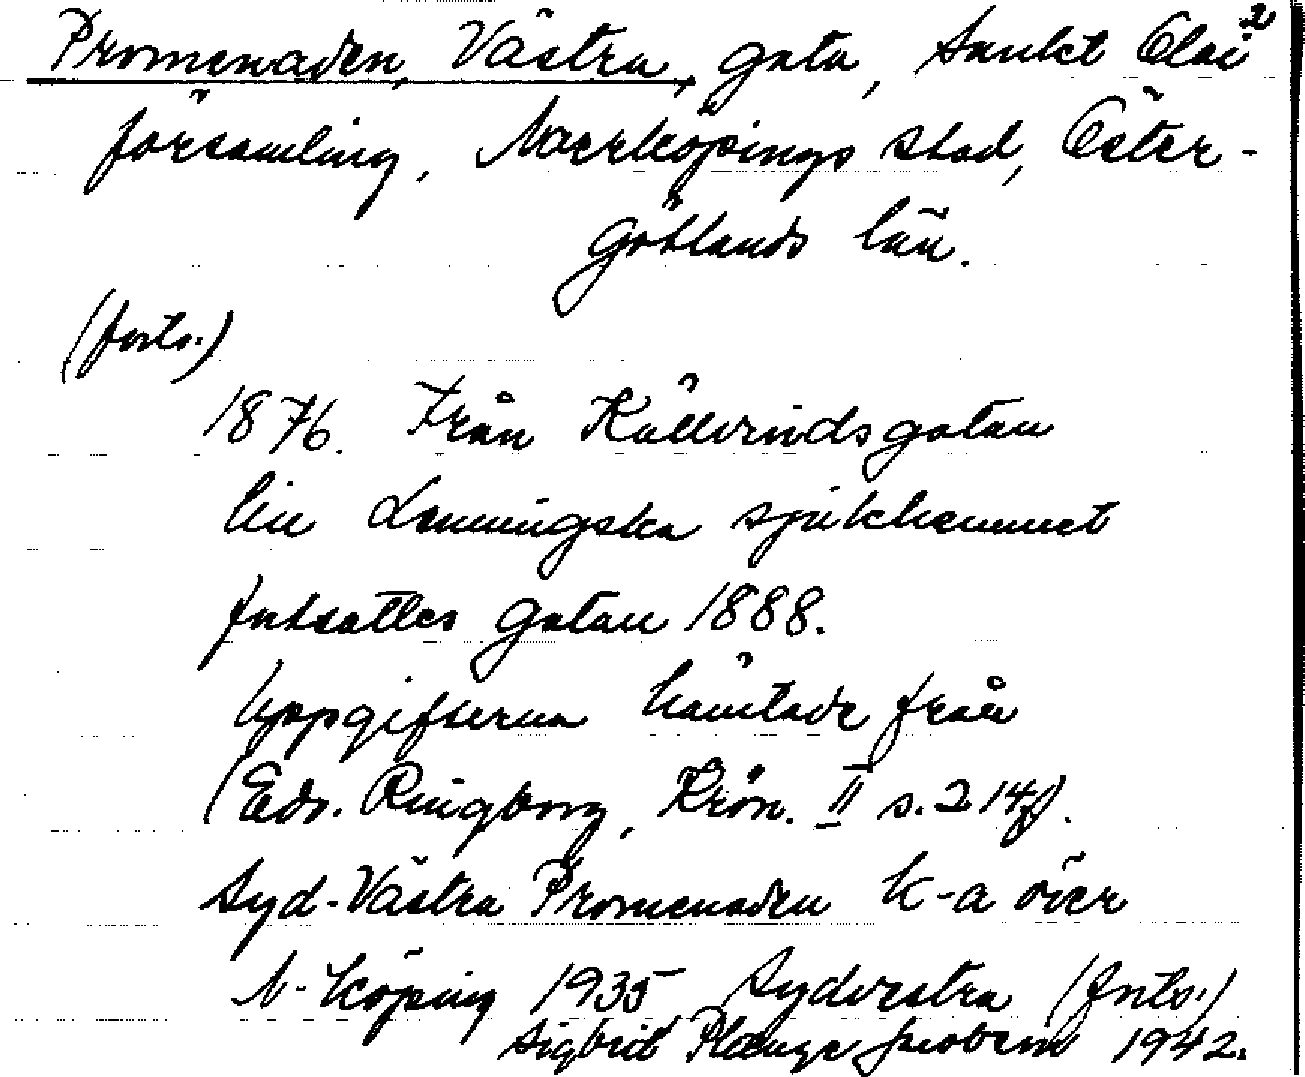 Promenaden, Västra, gata, Sankt Olai 2
församling, Norrköpings stad, Öster-
götlands län.
(forts.)
1876. Från Källvindsgatan
till Lenningska sjukhemmet
fortsattes gatan 1888.
Uppgifterna hämtade från
(Edv. Ringborg, Krön. II s. 214f).
Syd-Västra Promenaden k-a över
N-köping 1935 Sydvestra (forts.)
Sigbrit Plænge Jacobson 1942.